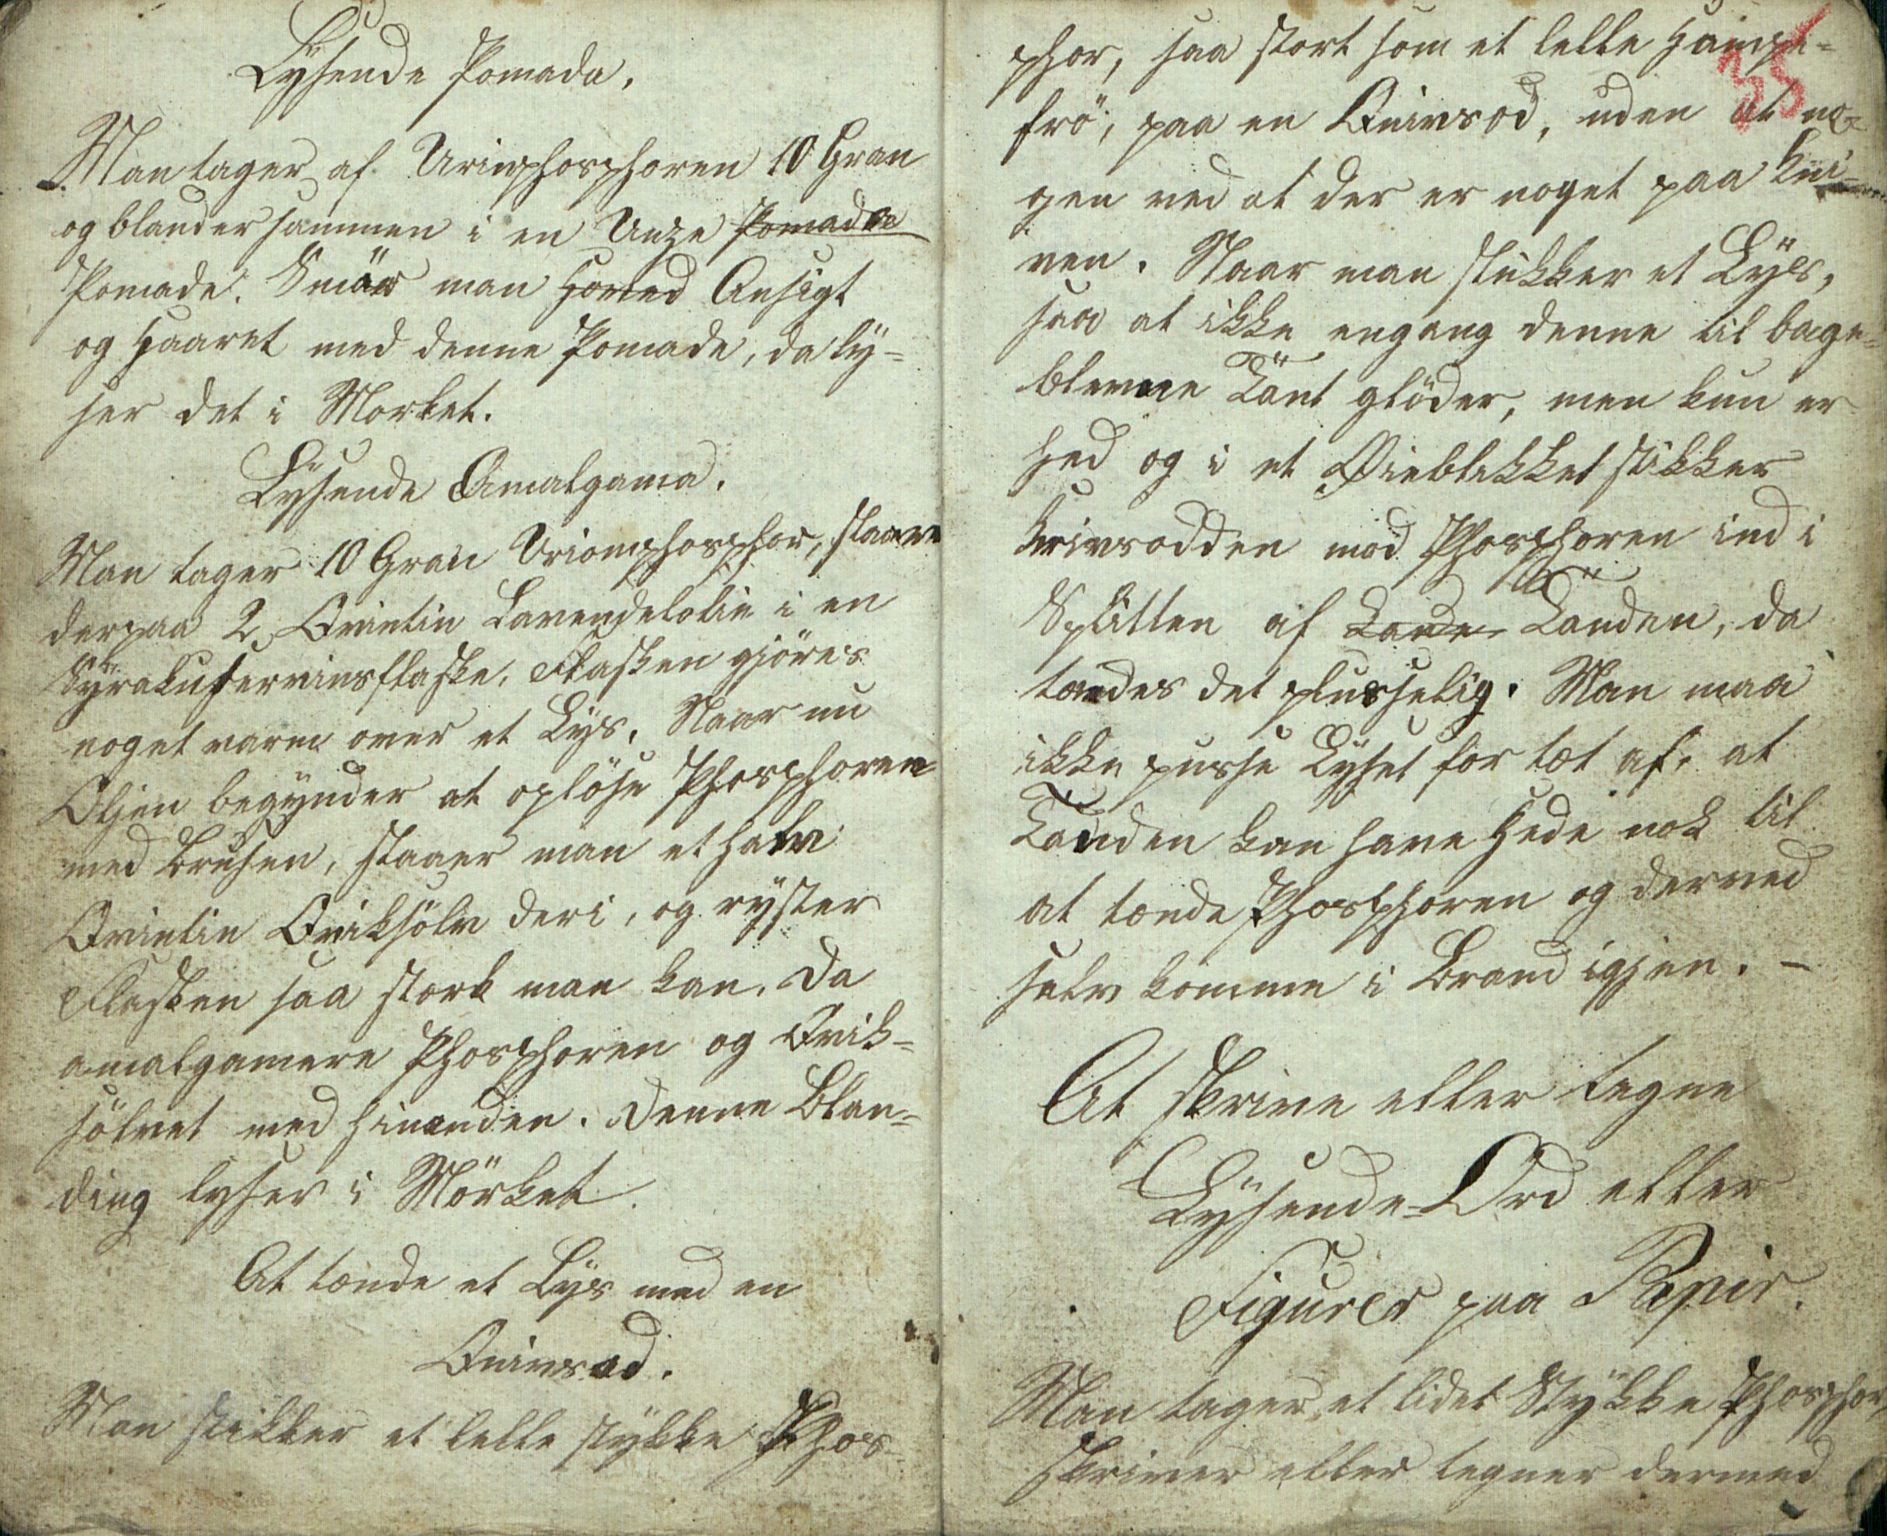 Lysende Pomada.
Man tager af Urinphosphoren 10 Gran
og blander sammen i en Unze Pomade
Pomade. Smör man Hoved Ansigt
og Haaret med denne Pomade, da ly=
ser det i Morket.
Lysende Amalgama.
Man tager 10 Gran Urionphosphor, slaaer
derpaa 2 Qvintin Lavendelolie i en
Syrakuserviinsflaske, Flasken gjöres
noget varm over et Lys. Naar nu
Oljen begynder at oplöse Phosphoren
med Brusen, slaaer man et halv
Qvintin Qviksölv deri, og ryster
Flasken saa stork man kan, da
amalgamere Phosphoren og Qvik=
sölvet med hinanden. Denne Blan=
ding lyser i Mörket.
At tænde et Lys med en
Knivsod.
Man stikker et lille stykke Phos=
35
phor, saa stort som et lille Hampe=
frö, paa en Knivsod, uden at no=
gen ved at der er noget paa Kni=
ven. Naar man slukker et Lys,
saa at ikke engang denne til bage=
blevne Tänt glöder, men kun er
hed og i et Øieblikket stikker
Knivsodden med Phosphoren ind i
Splitten af Tände Tänden, da
tændes det plusselig. Man maa
ikke pusse Lyset for tæt af, at
Tänden kan have Hede nok til
at tænde Phosphoren og derved
selv komme i Brand igjen. –
At skrive eller tegne
Lysende=Ord eller
Figurer paa Papir.
Man tager et lidet Stykke Phosphor,
skriver eller tegner dermed